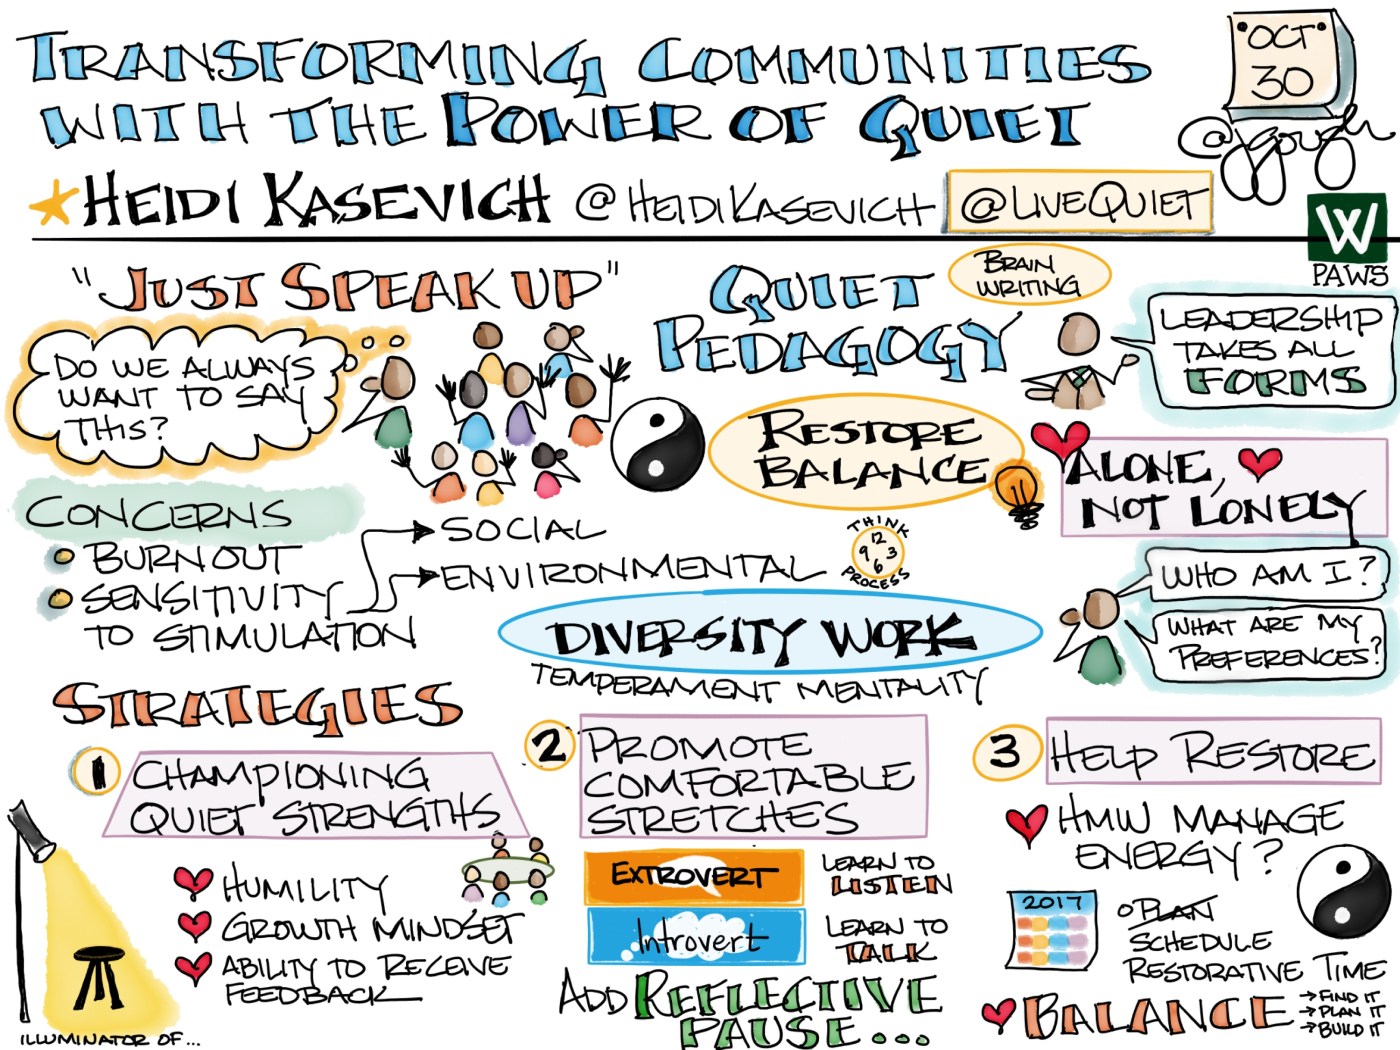 TRANSFORMING COMMUNITIES
WITH THE POWER OF QUIET
OCT
30
@jgough
HEIDI KASEVICH @HEIDIKASEVICH @LIVEQUIET
W
PAWS
"JUST SPEAK UP"
DO WE ALWAYS
WANT TO SAY
THIS?
QUIET
PEDAGOGY
BRAIN
WRITING
LEADERSHIP
TAKES ALL
FORMS
RESTORE
BALANCE
ALONE,
NOT LONELY
CONCERNS
BURNOUT
SENSITIVITY
TO STIMULATION
SOCIAL
ENVIRONMENTAL
THINK
12
9 3
6
PROCESS
WHO AM I?
WHAT ARE MY
PREFERENCES?
DIVERSITY WORK
TEMPERAMENT MENTALITY
STRATEGIES
1 CHAMPIONING
QUIET STRENGTHS
HUMILITY
GROWTH MINDSET
ABILITY TO RECEIVE
FEEDBACK
ILLUMINATOR OF...
2 PROMOTE
COMFORTABLE
STRETCHES
EXTROVERT
LEARN TO
LISTEN
Introvert
LEARN TO
TALK
ADD REFLECTIVE
PAUSE...
3 HELP RESTORE
HMW MANAGE
ENERGY?
2017
PLAN
SCHEDULE
RESTORATIVE TIME
BALANCE
→ FIND IT
→ PLAN IT
→ BUILD IT